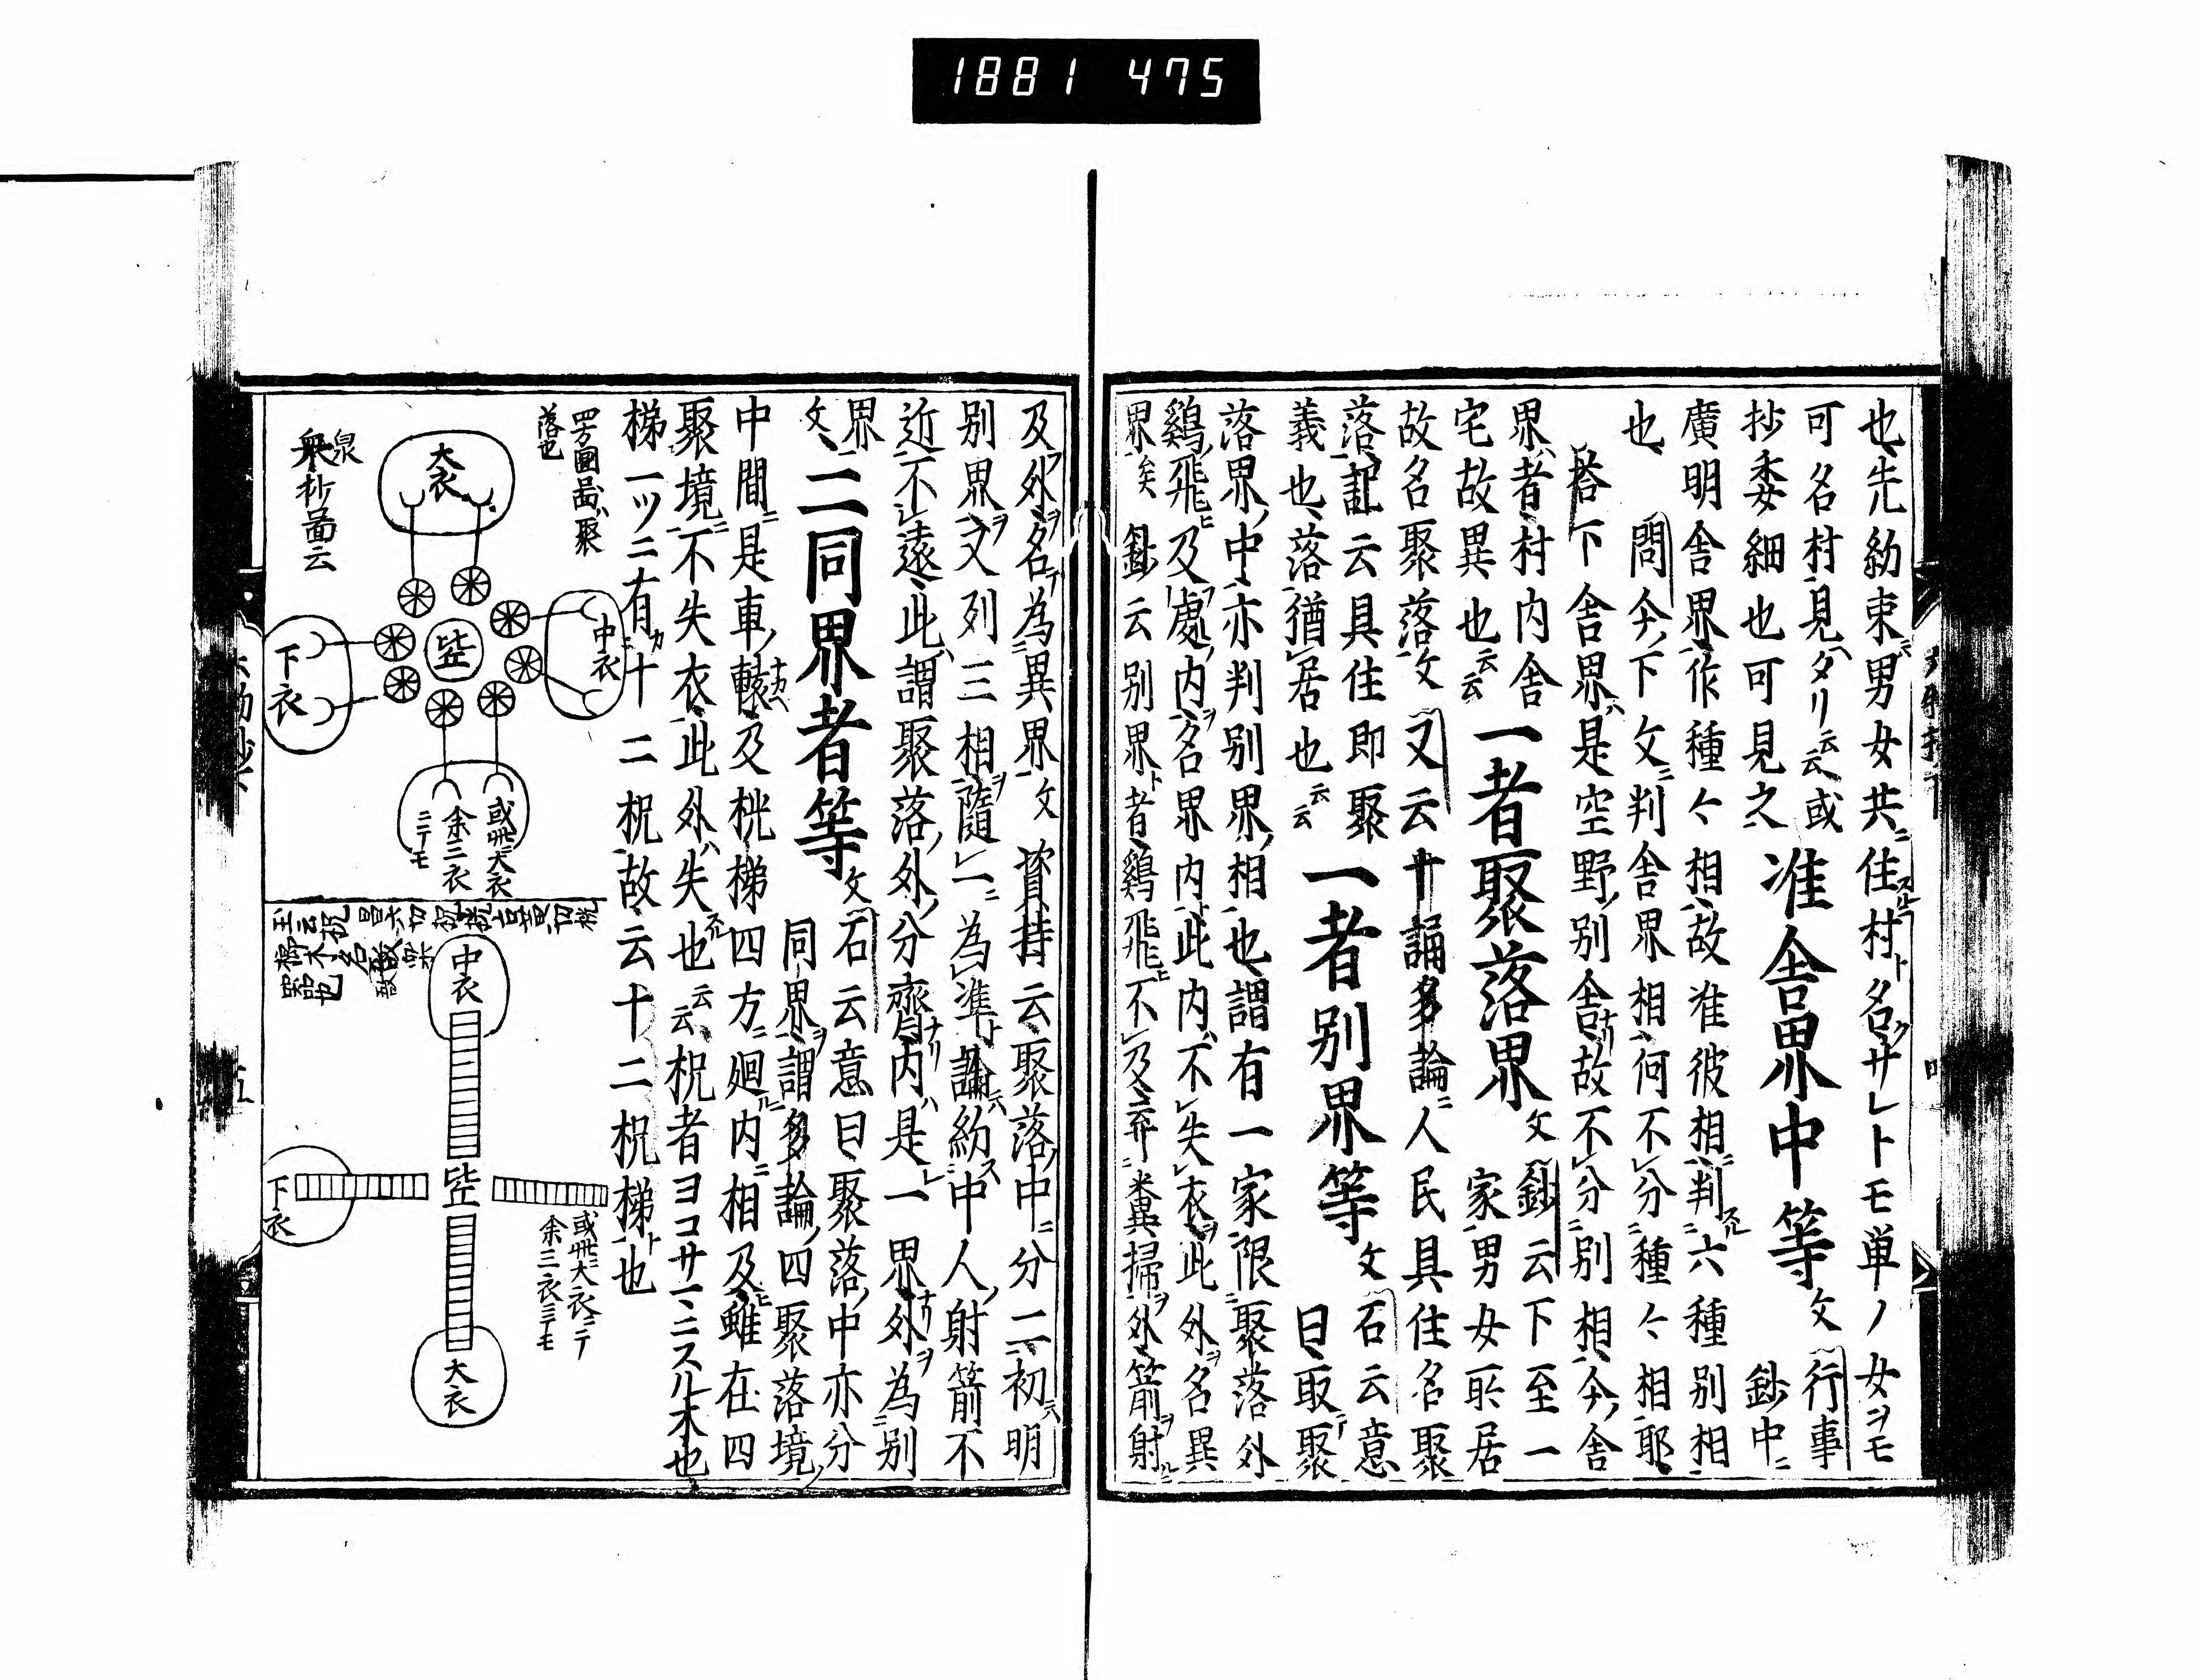 1881 475
也先約束男女共住村名サレトモ単ノ女ヲモ
可名村見タリ云云或准舍界中等文行事
抄委細也可見之 鈔中ニ
廣明舍界作種々相故准彼相判六種別相
也 問今下文判舍界相何不分種々相耶
答下舍界是空野別舍故不分別相今舍
界者村内舍一者聚落界文鈔云下至一
宅故異也云云 家男女所居
故名聚落文又云十誦多論人民具住名聚
落記云具住即聚一者別界等文石云意
義也落猶居也云云 曰取聚
落界中亦判別界相也謂有一家限聚落外
鷄飛及處内名界内此内不失衣此外名異
界矣鈔云別界者鷄飛不及弃糞掃外箭射
及外名為異界文資持云聚落中分二初明
別界又列三相隨一為準論約中人射箭不
近不遠此謂聚落外分齊内是一界外為別
界文二同界者等文石云意曰聚落中亦分
同界謂多論四聚落境
中間是車轅及桄梯四方廻内相及雖在四
聚境不失衣此外失也云云桄者ヨコサマニスル木也
梯一ツニ有十二桄故云十二桄梯也
四方圓畐ハ聚
落也
大衣
中衣
下衣
或ハ大衣
余二衣
ニテモ
泉
抄畐云
中衣
下衣
大衣
或ハ大衣ニテ
余三衣ニテモ